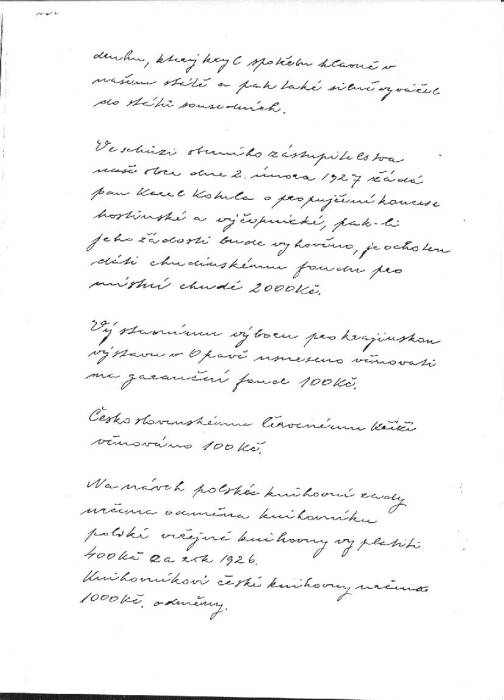 druhu, který kryl spotřebu hlavně v
našem státě a pak také silně vyvážel
do států sousedních.
Ve schůzi obecního zastupitelstva
naší obce dne 2. února 1927 žádá
pan Karel Kotula o propujčení koncese
hostinské a výčepnické, pak-li
jeho žádosti bude vyhověno, je ochoten
dáti chudinskému fondu pro
místní chudé 2000Kč.
Výstavnímu výboru pro krajinskou
výstavu v Opavě usneseno věnovati
na garanční fond 100Kč.
Československému Červenému Kříži
věnováno 100Kč.
Na návrh polské knihovní rady
určena odměna knihovníku
polské veřejné knihovny vyplatiti
400Kč za rok 1926.
Knihovníkovi české knihovny určeno
1000Kč. odměny.